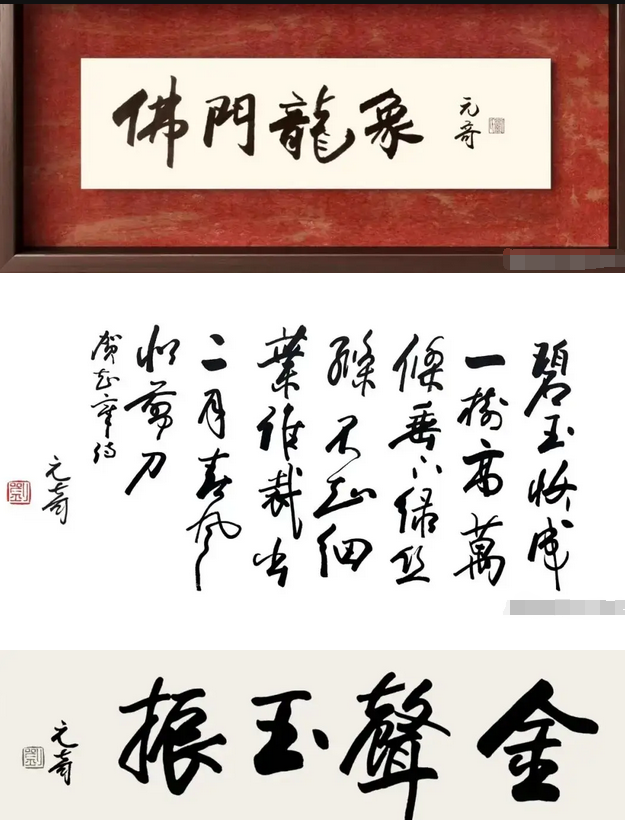 佛門龍象
元奇
碧玉妝成
一樹高萬
條垂下綠絲
絛不知細
葉誰裁出
二月春風
似剪刀
賀知章詩
元奇
劉
金聲玉振
元奇
劉